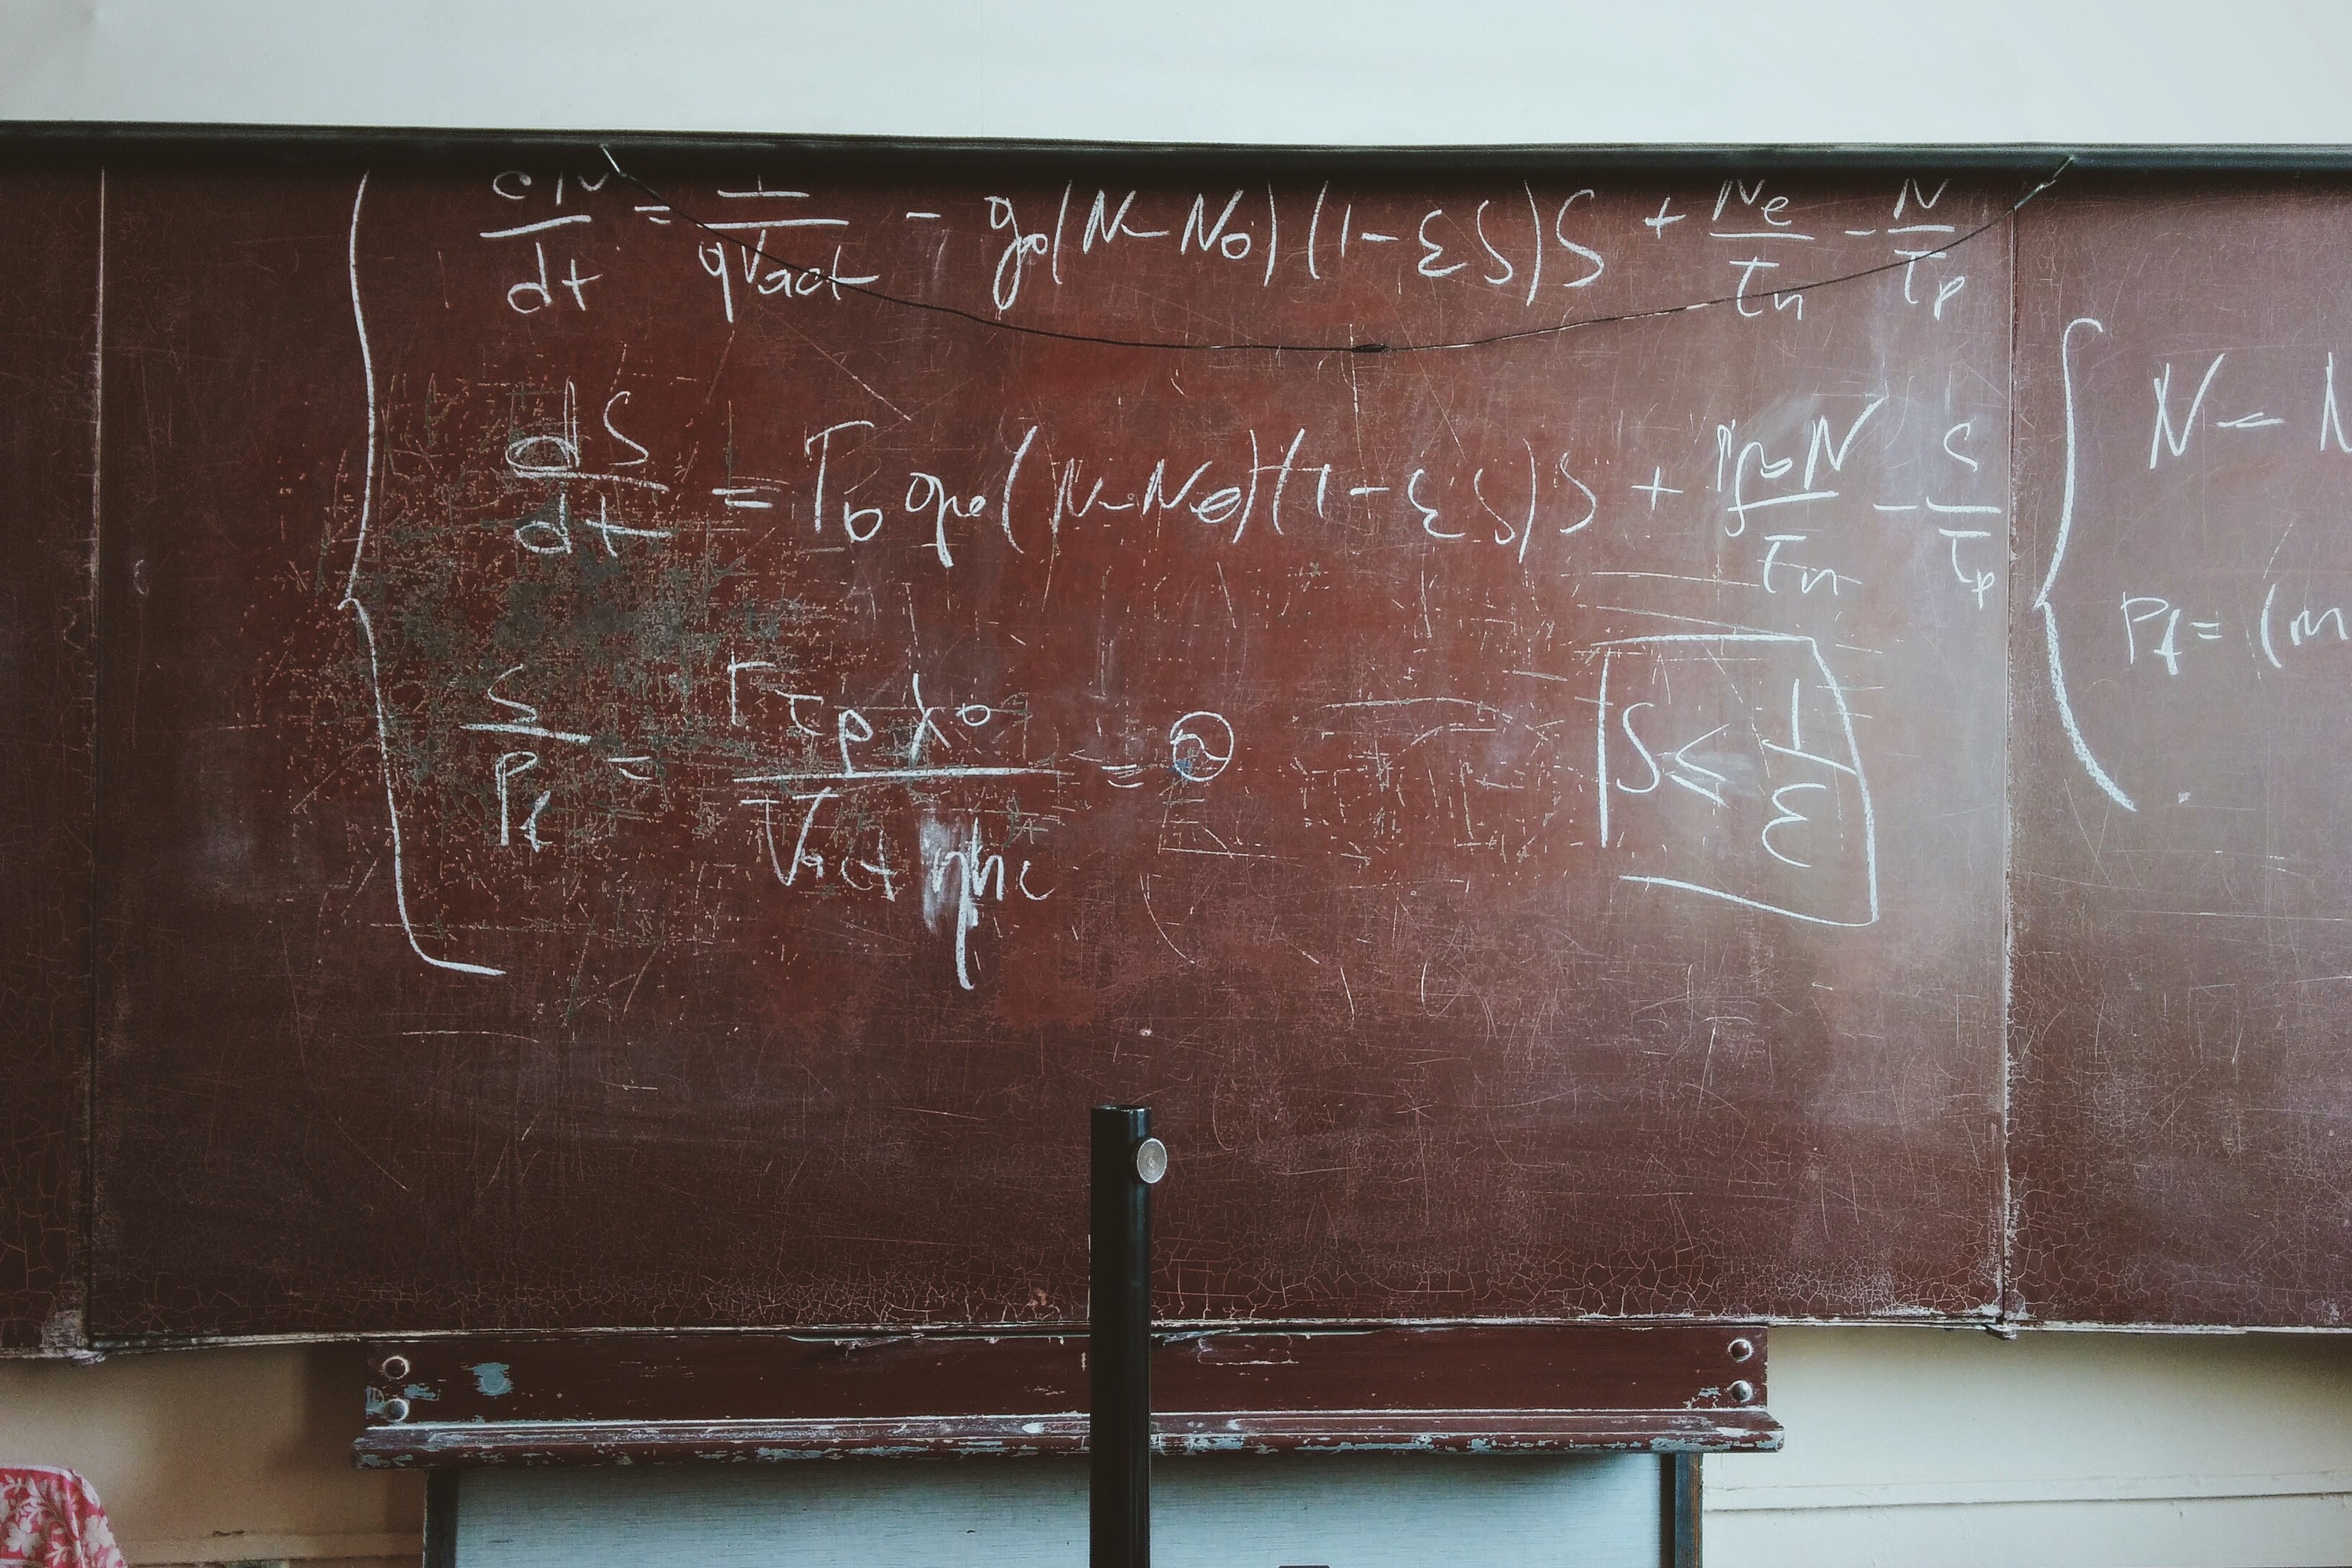 dN/dt = I/(qVact) - g0(N-N0)(1-εS)S + Ne/τn - N/τp
dS/dt = Γ0 g0(N-N0)(1-εS)S + Γβ0N/τn - S/τp
S/Pf = Γτpλ0/(Vact ηhc) =
S ≤ 1/ε
N -
Pf = (m